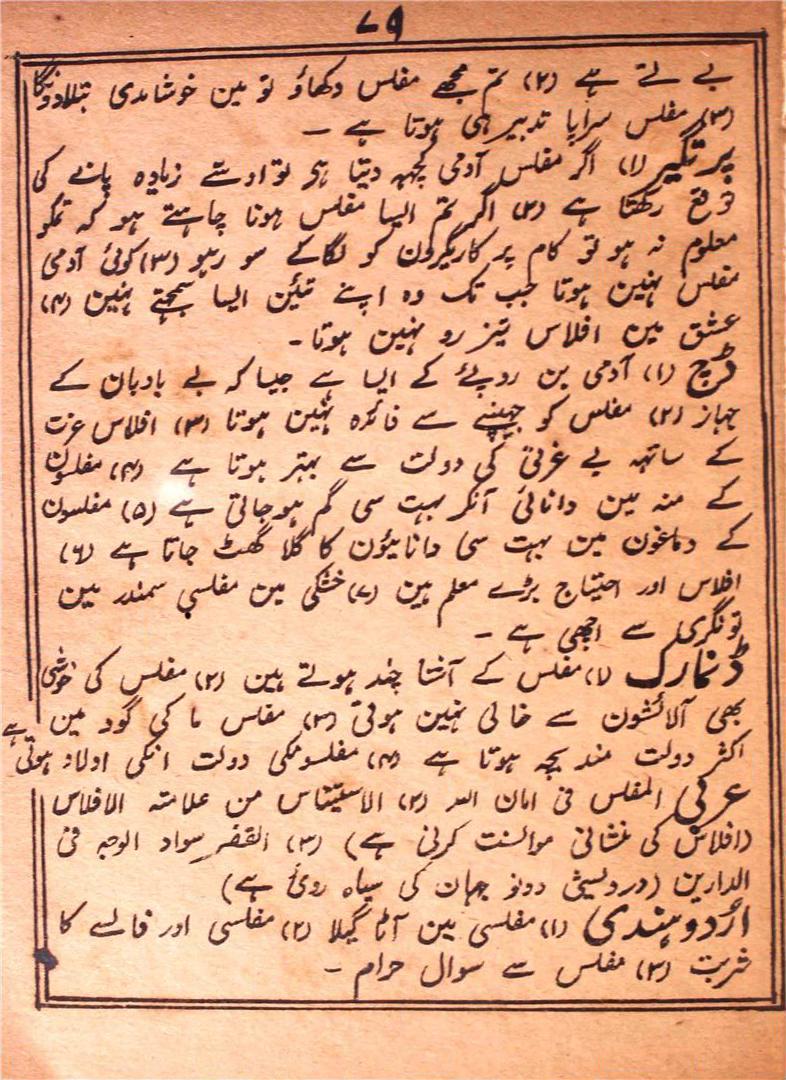 ۷۹
بے لتے ہے (۲) تم مجھے مفلس دکھاؤ تو مین خوشامدی بتلادونگا
(۳) مفلس سراپا تدبیر ہی ہوتا ہے ۔
پرتگیز (۱) اگر مفلس آدمی کچھہ دیتا ہی تو اوسے زیادہ پانے کی
توقع رکھتا ہے (۲) اگر تم ایسا مفلس ہونا چاہتے ہو کہ تمکو
معلوم نہ ہو تو کام پر کاریگرون کو لگا کے سو رہو (۳) کوئی آدمی
مفلس نہین ہوتا جب تک وہ اپنے تئین ایسا سمجھتے نہین (۴)
عشق مین افلاس تیز رو نہین ہوتا ۔
ڈچ (۱) آدمی بن روپئے کے ایسا ہے جیسا کہ بے بادبان کے
جہاز (۲) مفلس کو جھینپنے سے فائدہ نہین ہوتا (۳) افلاس عزت
کے ساتھہ بے عزتی کی دولت سے بہتر ہوتا ہے (۴) مفلسون
کے منہ مین دانائی آنکر بہت سی گم ہوجاتی ہے (۵) مفلسون
کے دماغون مین بہت سی دانائیون کا گلا گھٹ جاتا ہے (۶)
افلاس اور احتیاج بڑے معلم ہین (۷) خشکی مین مفلسی سمندر مین
تونگری سے اچھی ہے ۔
ڈنمارک (۱) مفلس کے آشنا چند ہوتے ہین (۲) مفلس کی خوشی
بھی آلائشون سے خالی نہین ہوتی (۳) مفلس ما کی گود مین
اکثر دولت مند بچہ ہوتا ہے (۴) مفلسونکی دولت انکی اولاد ہوتی ہے
عربی المفلس فی امان اللہ (۲) الاستیناس من علامتہ الافلاس
(افلاس کی نشانی موالست کرنی ہے) (۳) الفقر سواد الوجہ فی
الدارین (درویشی دونو جہان کی سیاہ روئی ہے)
اردو ہندی (۱) مفلسی مین آٹا گیلا (۲) مفلسی اور فالسے کا
شربت (۳) مفلس سے سوال حرام ۔